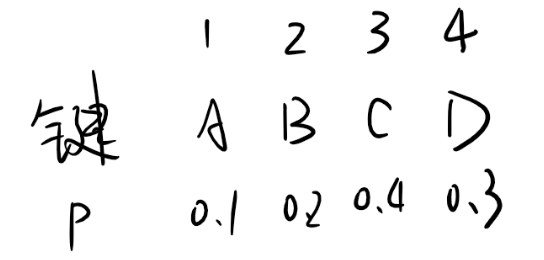 1 2 3 4
键 A B C D
P 0.1 0.2 0.4 0.3